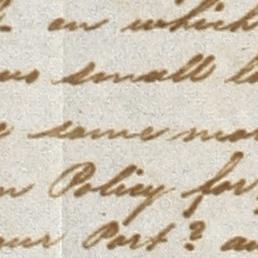 on which
small
same
Policy for
our Port? a